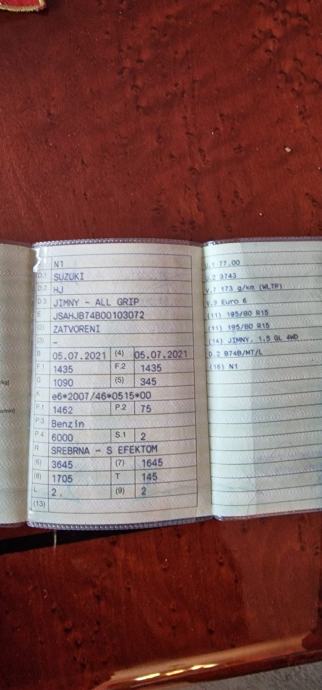 N1
D.1 SUZUKI
D.2 HJ
D.3 JIMNY - ALL GRIP
E JSAHJB74B00103072
ZATVORENI
-
B 05.07.2021 (4) 05.07.2021
F.1 1435 F.2 1435
G 1090 (5) 345
K e6*2007/46*0515*00
P.1 1462 P.2 75
P.3 Benzin
P.4 6000 S.1 2
R SREBRNA - S EFEKTOM
(6) 3645 (7) 1645
(8) 1705 T 145
L 2 (9) 2
(13)
77.00
3743
V.7 173 g/km (WLTP)
V.9 Euro 6
(11) 195/80 R15
(11) 195/80 R15
(14) JIMNY, 1.5 GL 4WD
D.2 B74B/MT/L
(16) N1